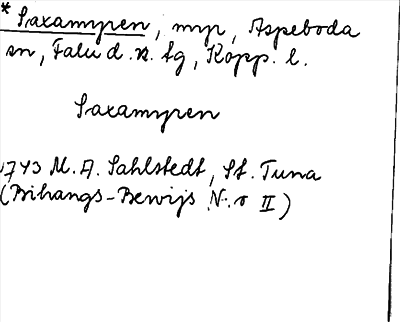 * Saxamyren, myr, Aspeboda
sn, Falu d.s. tg, Kopp. l.
Saxamyren
1743 M. A. Sahlstedt, St. Tuna
(Bihangs-Bewijs N:o II)